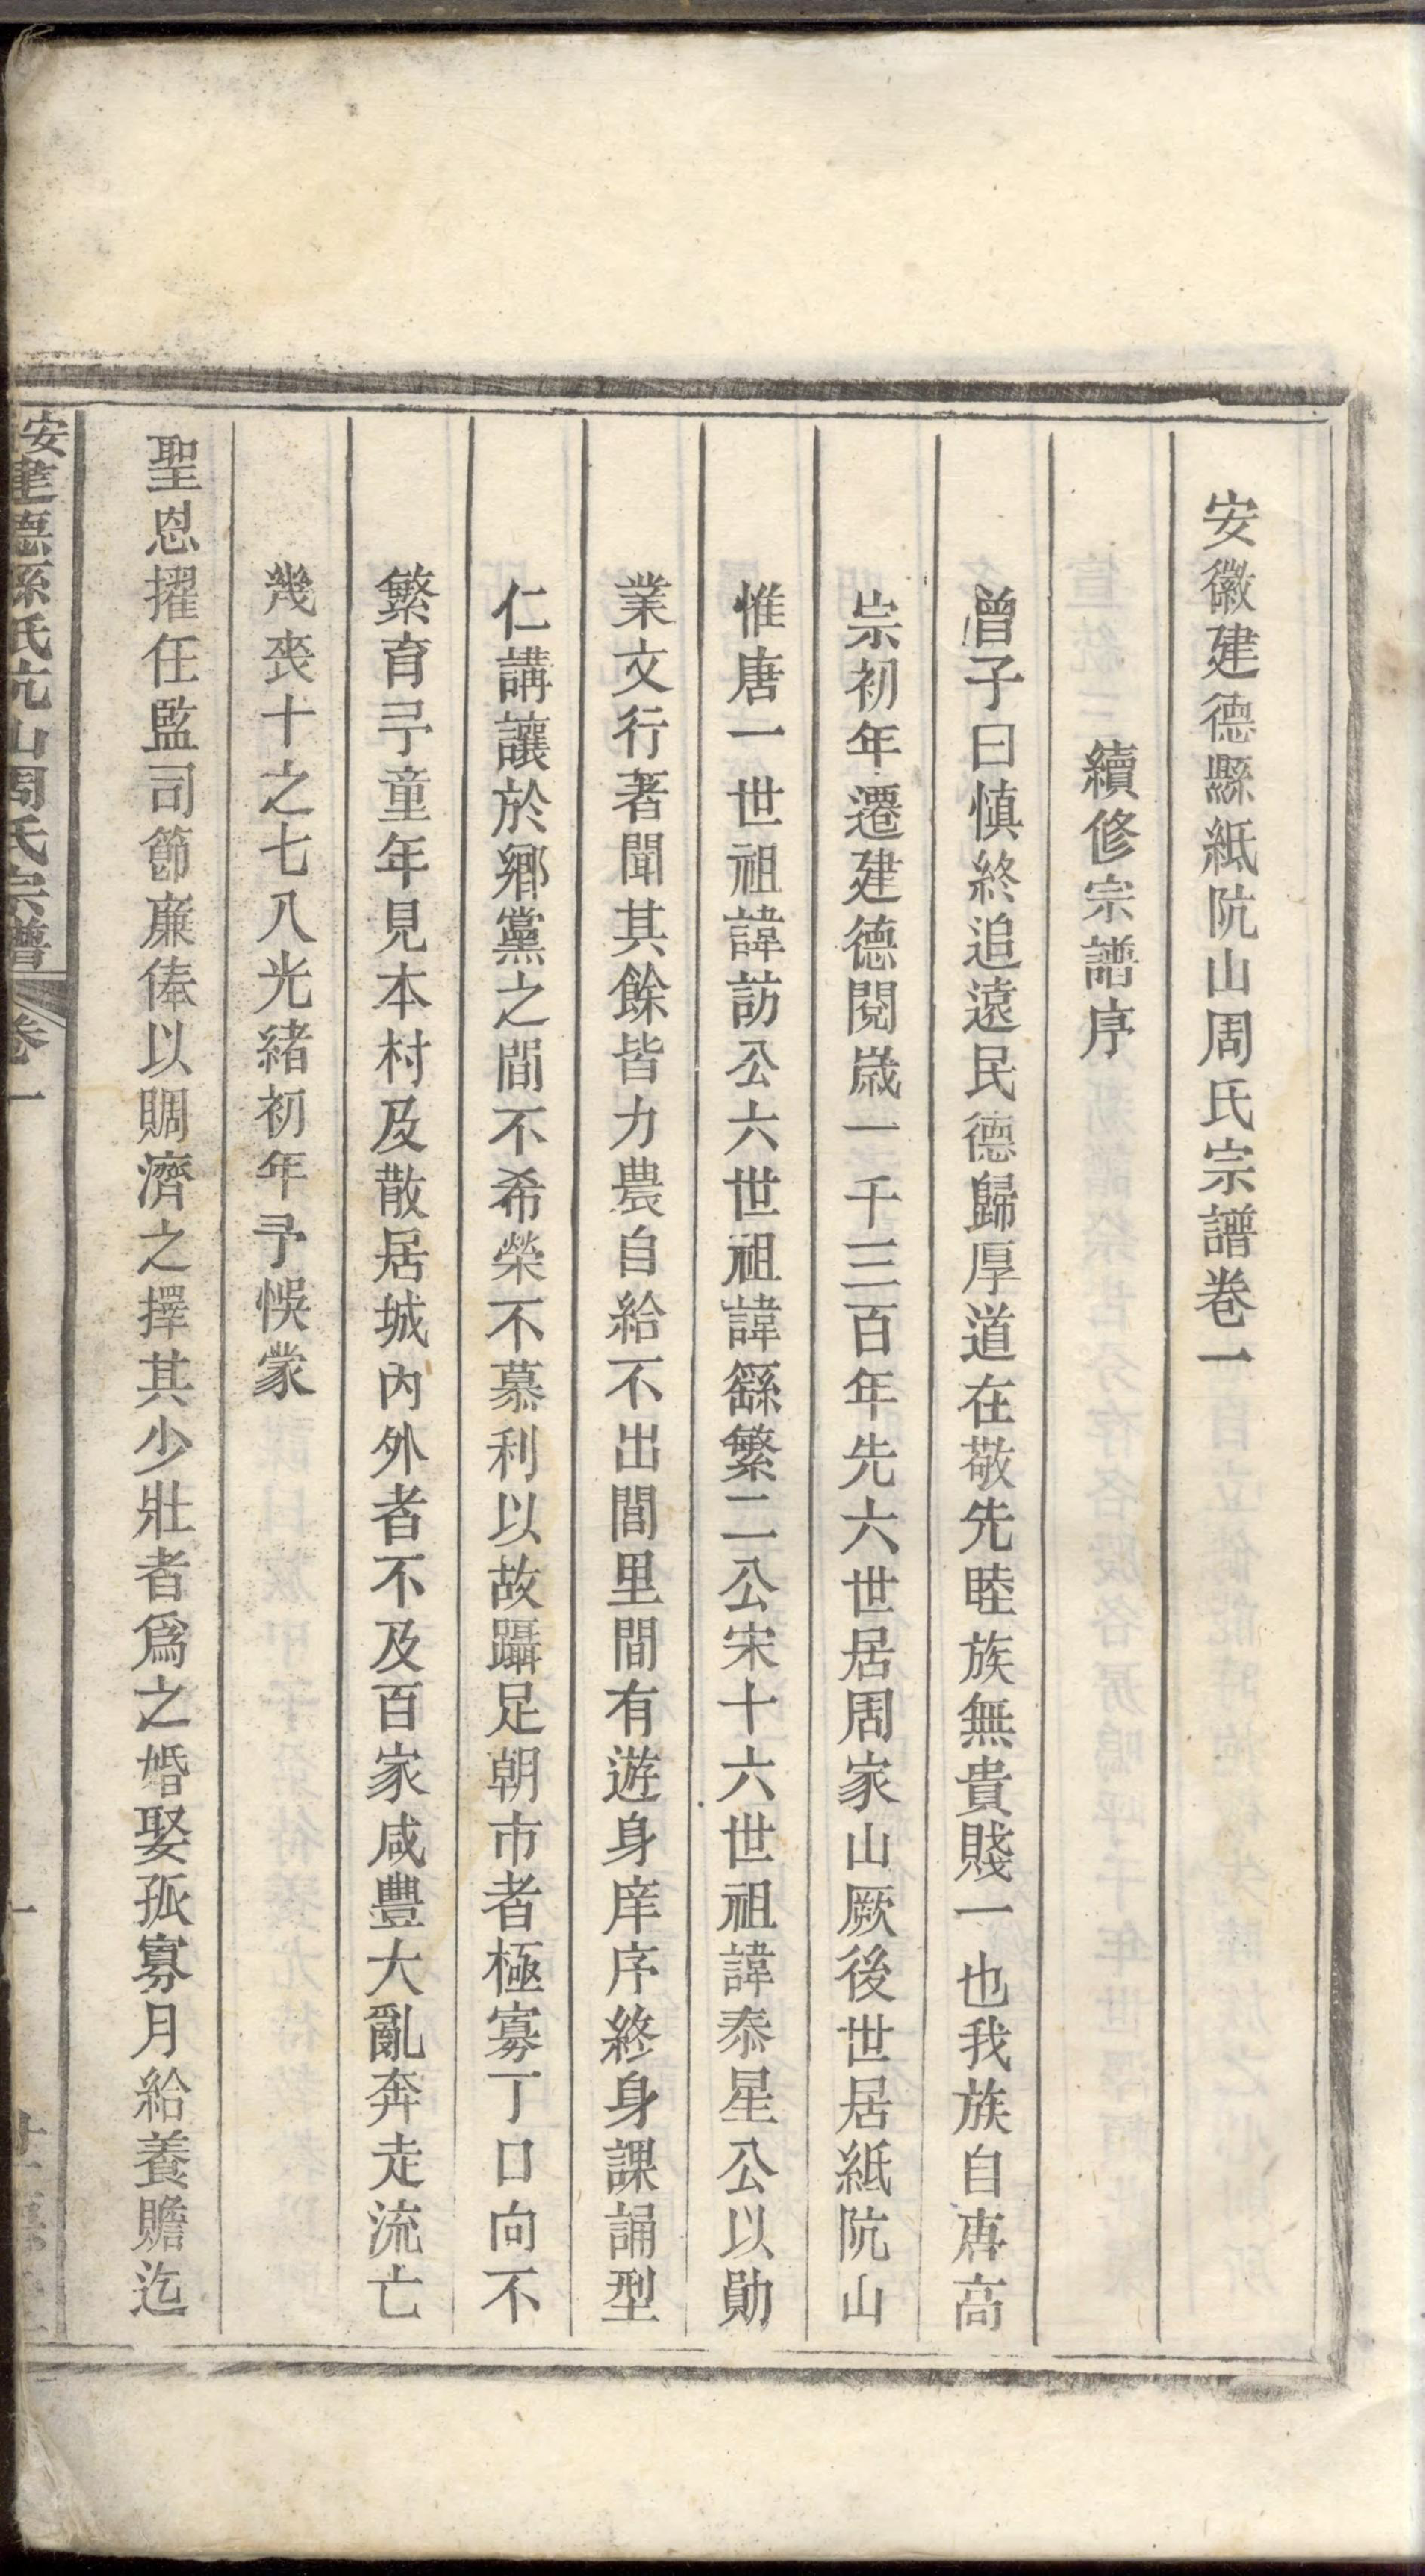 安徽建德縣紙阬山周氏宗譜卷一
續修宗譜序
曾子曰慎終追遠民德歸厚道在敬先睦族無貴賤一也我族自唐高
宗初年遷建德閱歲一千三百年先六世居周家山厥後世居紙阬山
惟唐一世祖諱訪公六世祖諱繇繁二公宋十六世祖諱泰星公以勛
業文行著聞其餘皆力農自給不出閭里間有遊身庠序終身課誦型
仁講讓於鄉黨之間不希榮不慕利以故躡足朝市者極寡丁口向不
繁育予童年見本村及散居城內外者不及百家咸豐大亂奔走流亡
幾喪十之七八光緒初年予悞蒙
聖恩擢任監司節廉俸以賙濟之擇其少壯者爲之婚娶孤寡月給養贍迄
周氏宗譜 卷一